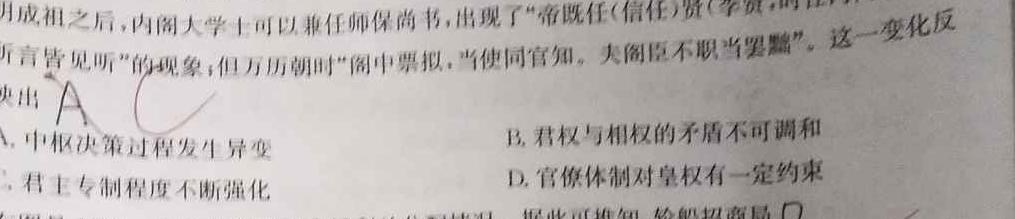 明成祖之后,内阁大学士可以兼任师保尚书,出现了“帝既任(信任)贤(李贤,时
所言皆见听”的现象;但万历朝时“阁中票拟,当使同官知。夫阁臣不职当罢黜”。这一变化反
映出 A C
A. 中枢决策过程发生异变
B. 君权与相权的矛盾不可调和
C. 君主专制程度不断强化
D. 官僚体制对皇权有一定约束
据此可推知,轮船招商局 D